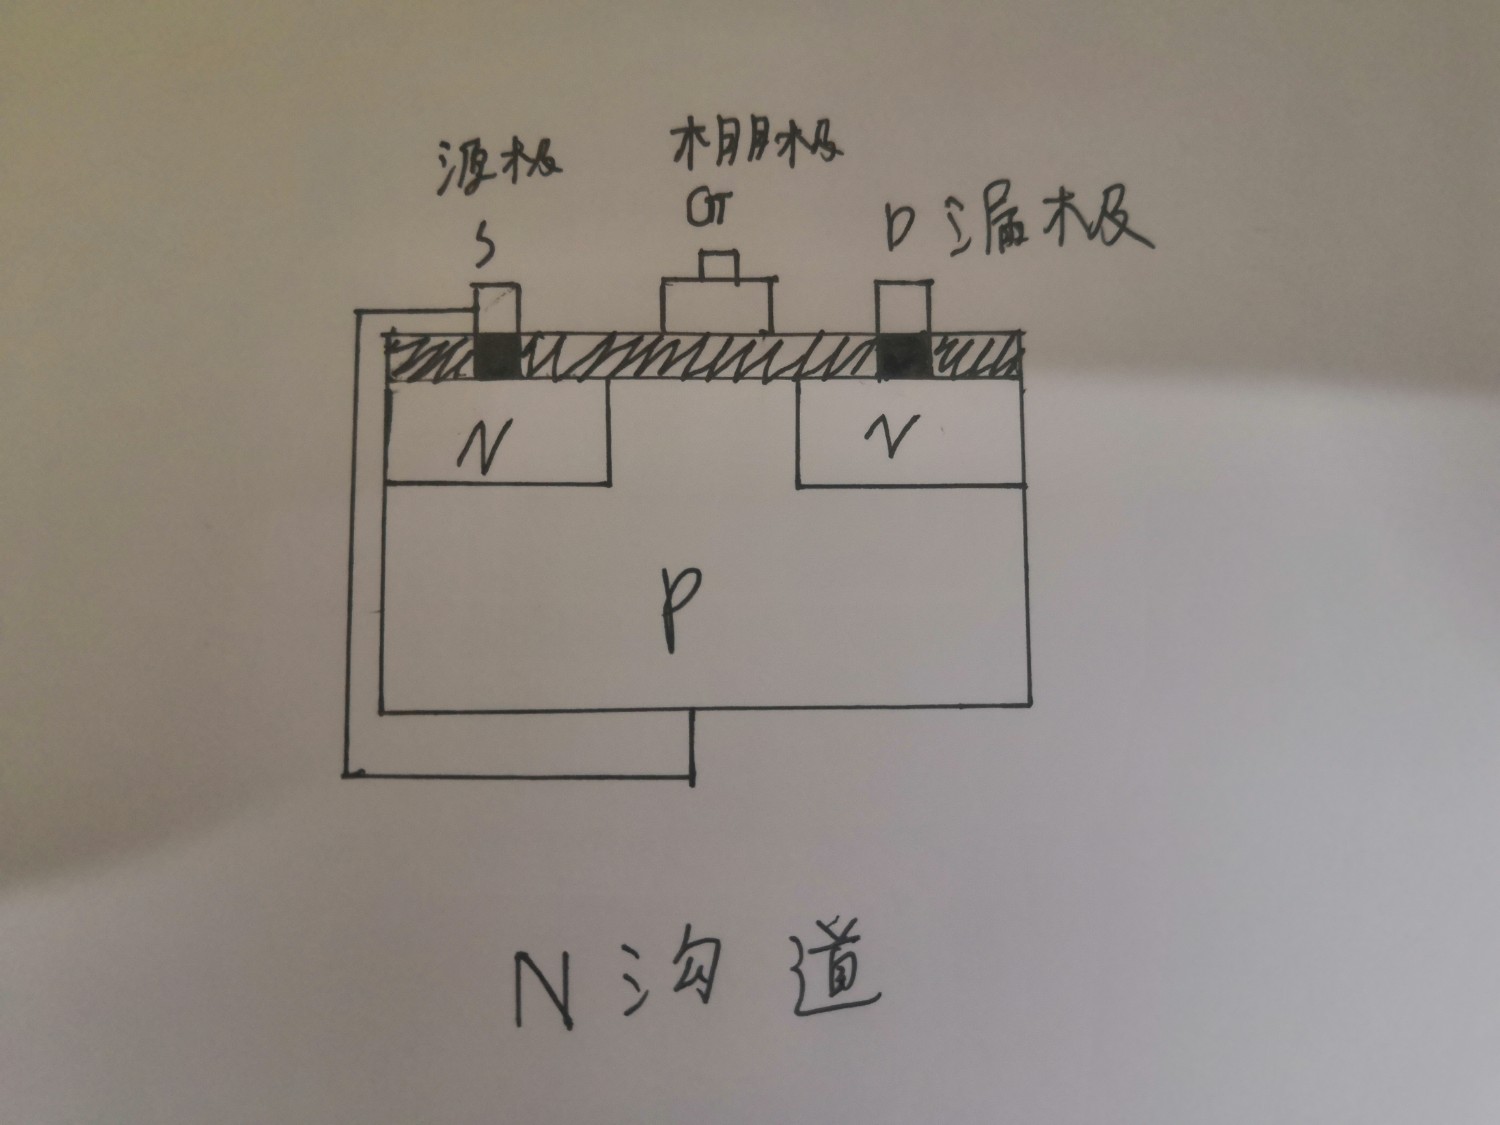 源极
栅极
S
G
D 漏极
N
N
P
N沟道